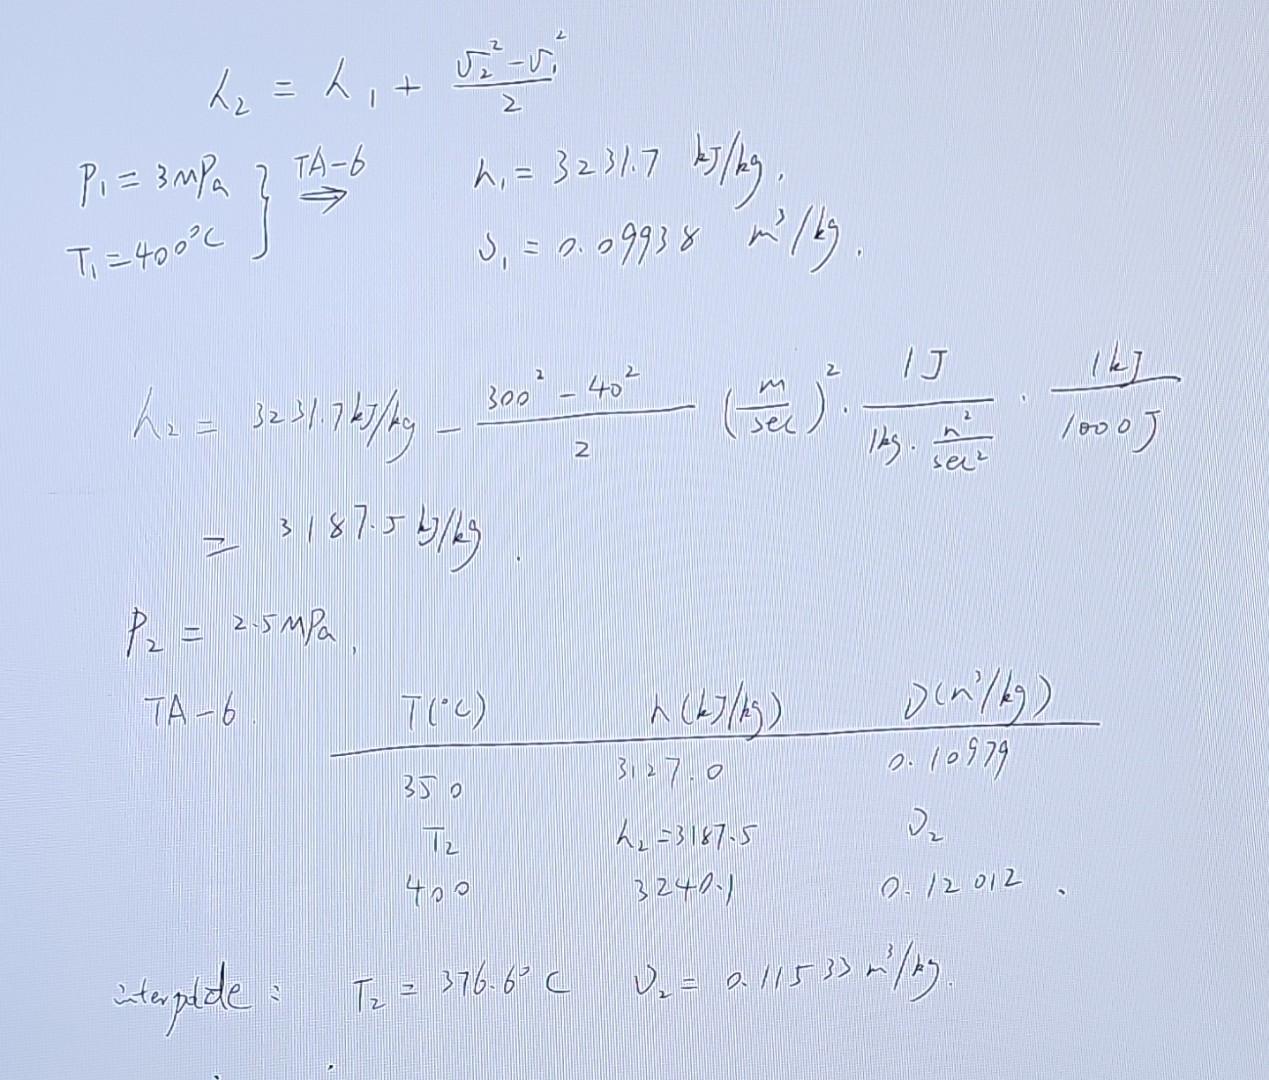 h₂ = h₁ + (v₂² - v₁²)/2
P₁ = 3 MPa } TA-6 ⇒ h₁ = 3231.7 kJ/kg.
T₁ = 400°C υ₁ = 0.09938 m³/kg.
h₂ = 3231.7 kJ/kg - (300² - 40²)/2 (m/sec)² · 1 J/(1kg · m²/sec²) · 1 kJ/1000 J
= 3187.5 kJ/kg.
P₂ = 2.5 MPa,
TA-6. T(°C) h (kJ/kg) υ (m³/kg)
350 3127.0 0.10979
T₂ h₂ = 3187.5 υ₂
400 3240.1 0.12012.
interpolate: T₂ = 376.6°C υ₂ = 0.11533 m³/kg.